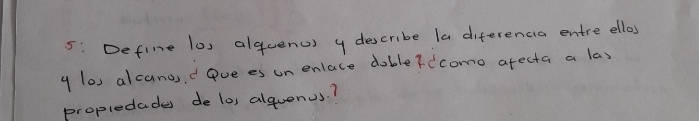 5: Define los alquenos y describe la diferencia entre ellos
y los alcanos. ¿ Que es un enlace doble? ¿como afecta a las
propiedades de los alquenos.?